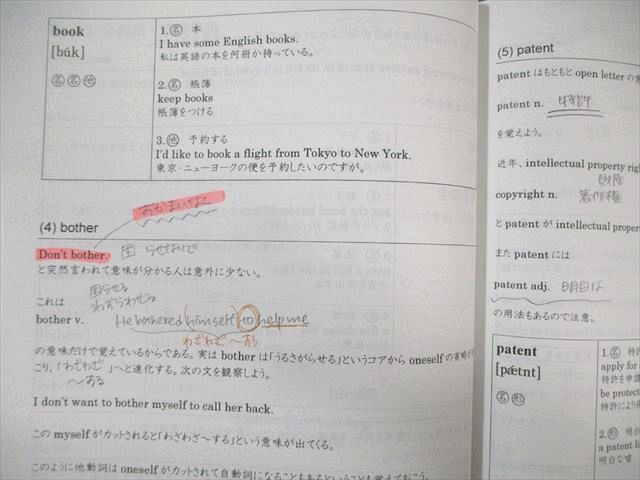 book
[búk]
名 名 他
1.名 本
I have some English books.
私は英語の本を何冊か持っている。
2.名 帳簿
keep books
帳簿をつける
3.他 予約する
I'd like to book a flight from Tokyo to New York.
東京・ニューヨークの便を予約したいのですが。
おかまいなく
(4) bother
Don't bother. 困らせないで
と突然言われて意味が分かる人は意外に少ない。
困らせる
これは わずらわせる
bother v. He bothered (himself) to help me
わざわざ〜する
の意味だけで覚えているからである。実は bother は「うるさがらせる」というコアから oneself の省略が
こり、「わざわざ 」へと進化する。次の文を観察しよう。
〜する
I don't want to bother myself to call her back.
この myself がカットされると「わざわざ〜する」という意味が出てくる。
このように他動詞は oneself がカットされて自動詞になることもあるということも覚えておこう。
(5) patent
patent はもともと open letter の意
patent n. 特許
を覚えよう。
近年、intellectual property righ
財産
copyright n. 著作権
と patent が intellectual propert
また patent には
patent adj. 明白な
の用法もあるので注意。
patent
[pǽtnt]
名 形
1.名 特
apply for
特許を申請
be protect
特許により保
2.形 明白
a patent li
明白な嘘